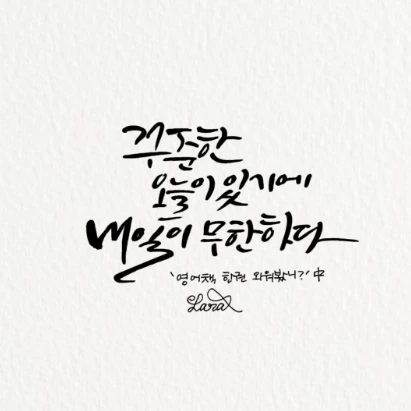 꾸준한
오늘이 있기에
내일이 무한하다
'영어책 한권 외워봤니?' 中
Lara